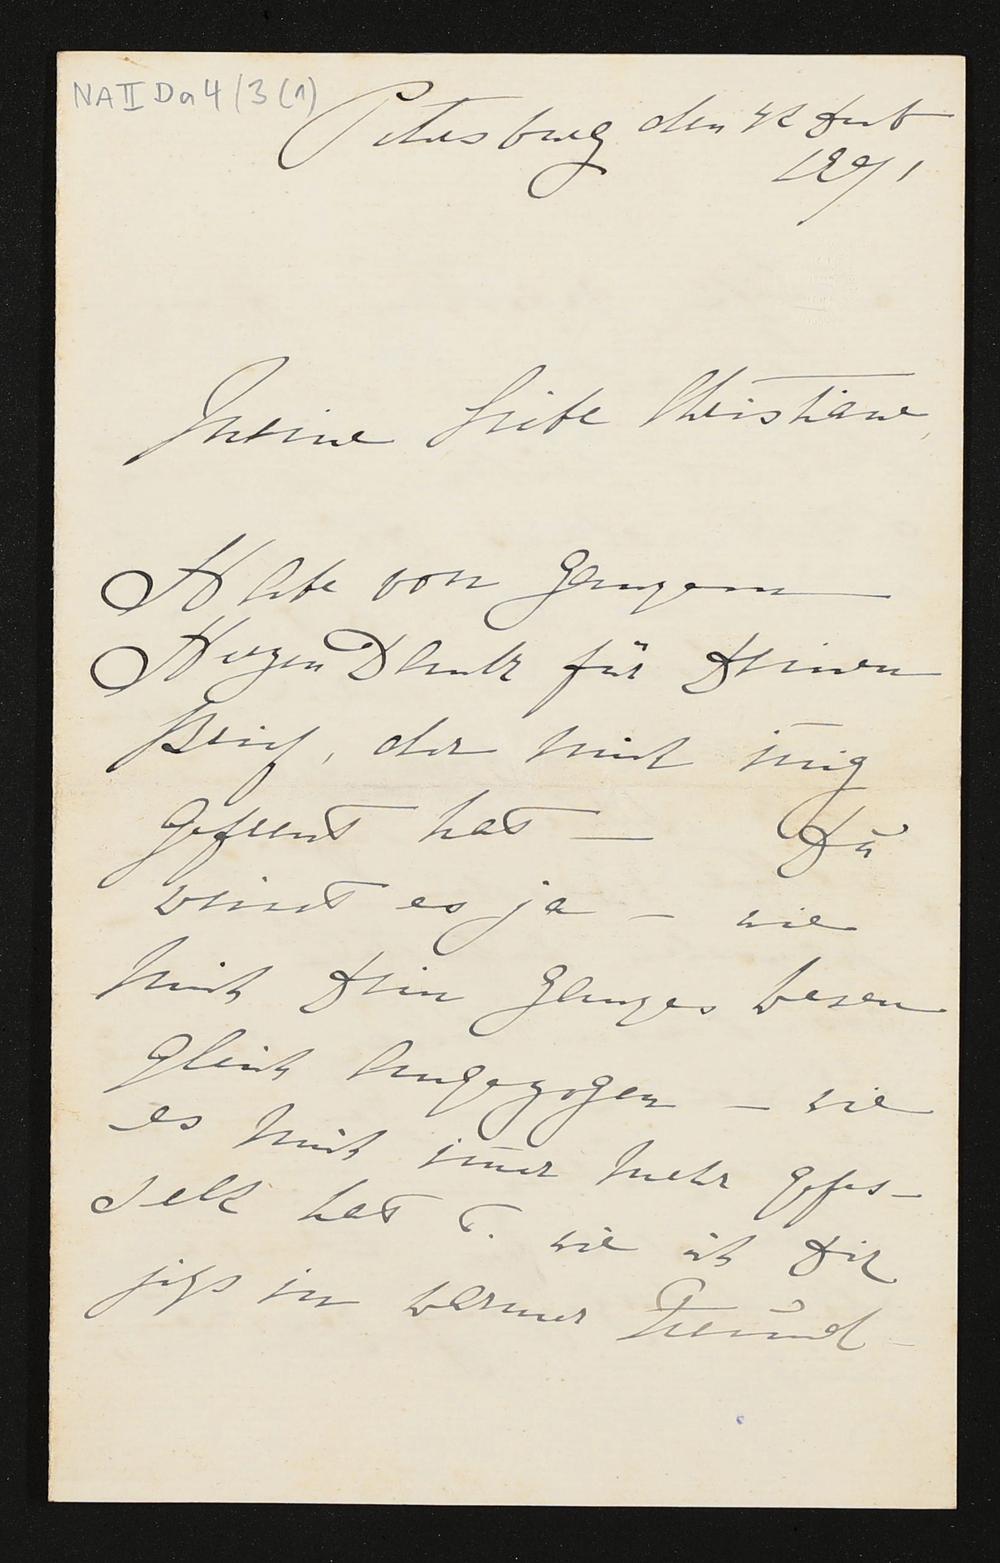 NA II Da 4/3 (1)
Petersburg den
1891
Meine liebe Christiane,
Habe von ganzem
Herzen Dank für Deinen
Brief, der mich innig
gefreut hat — Du
weisst es ja — wie
mich Dein ganzes Wesen
gleich angezogen — wie
es mich im̄er mehr gefes-
selt hat u. wie ich Dir
jetzt in warmer Freund-